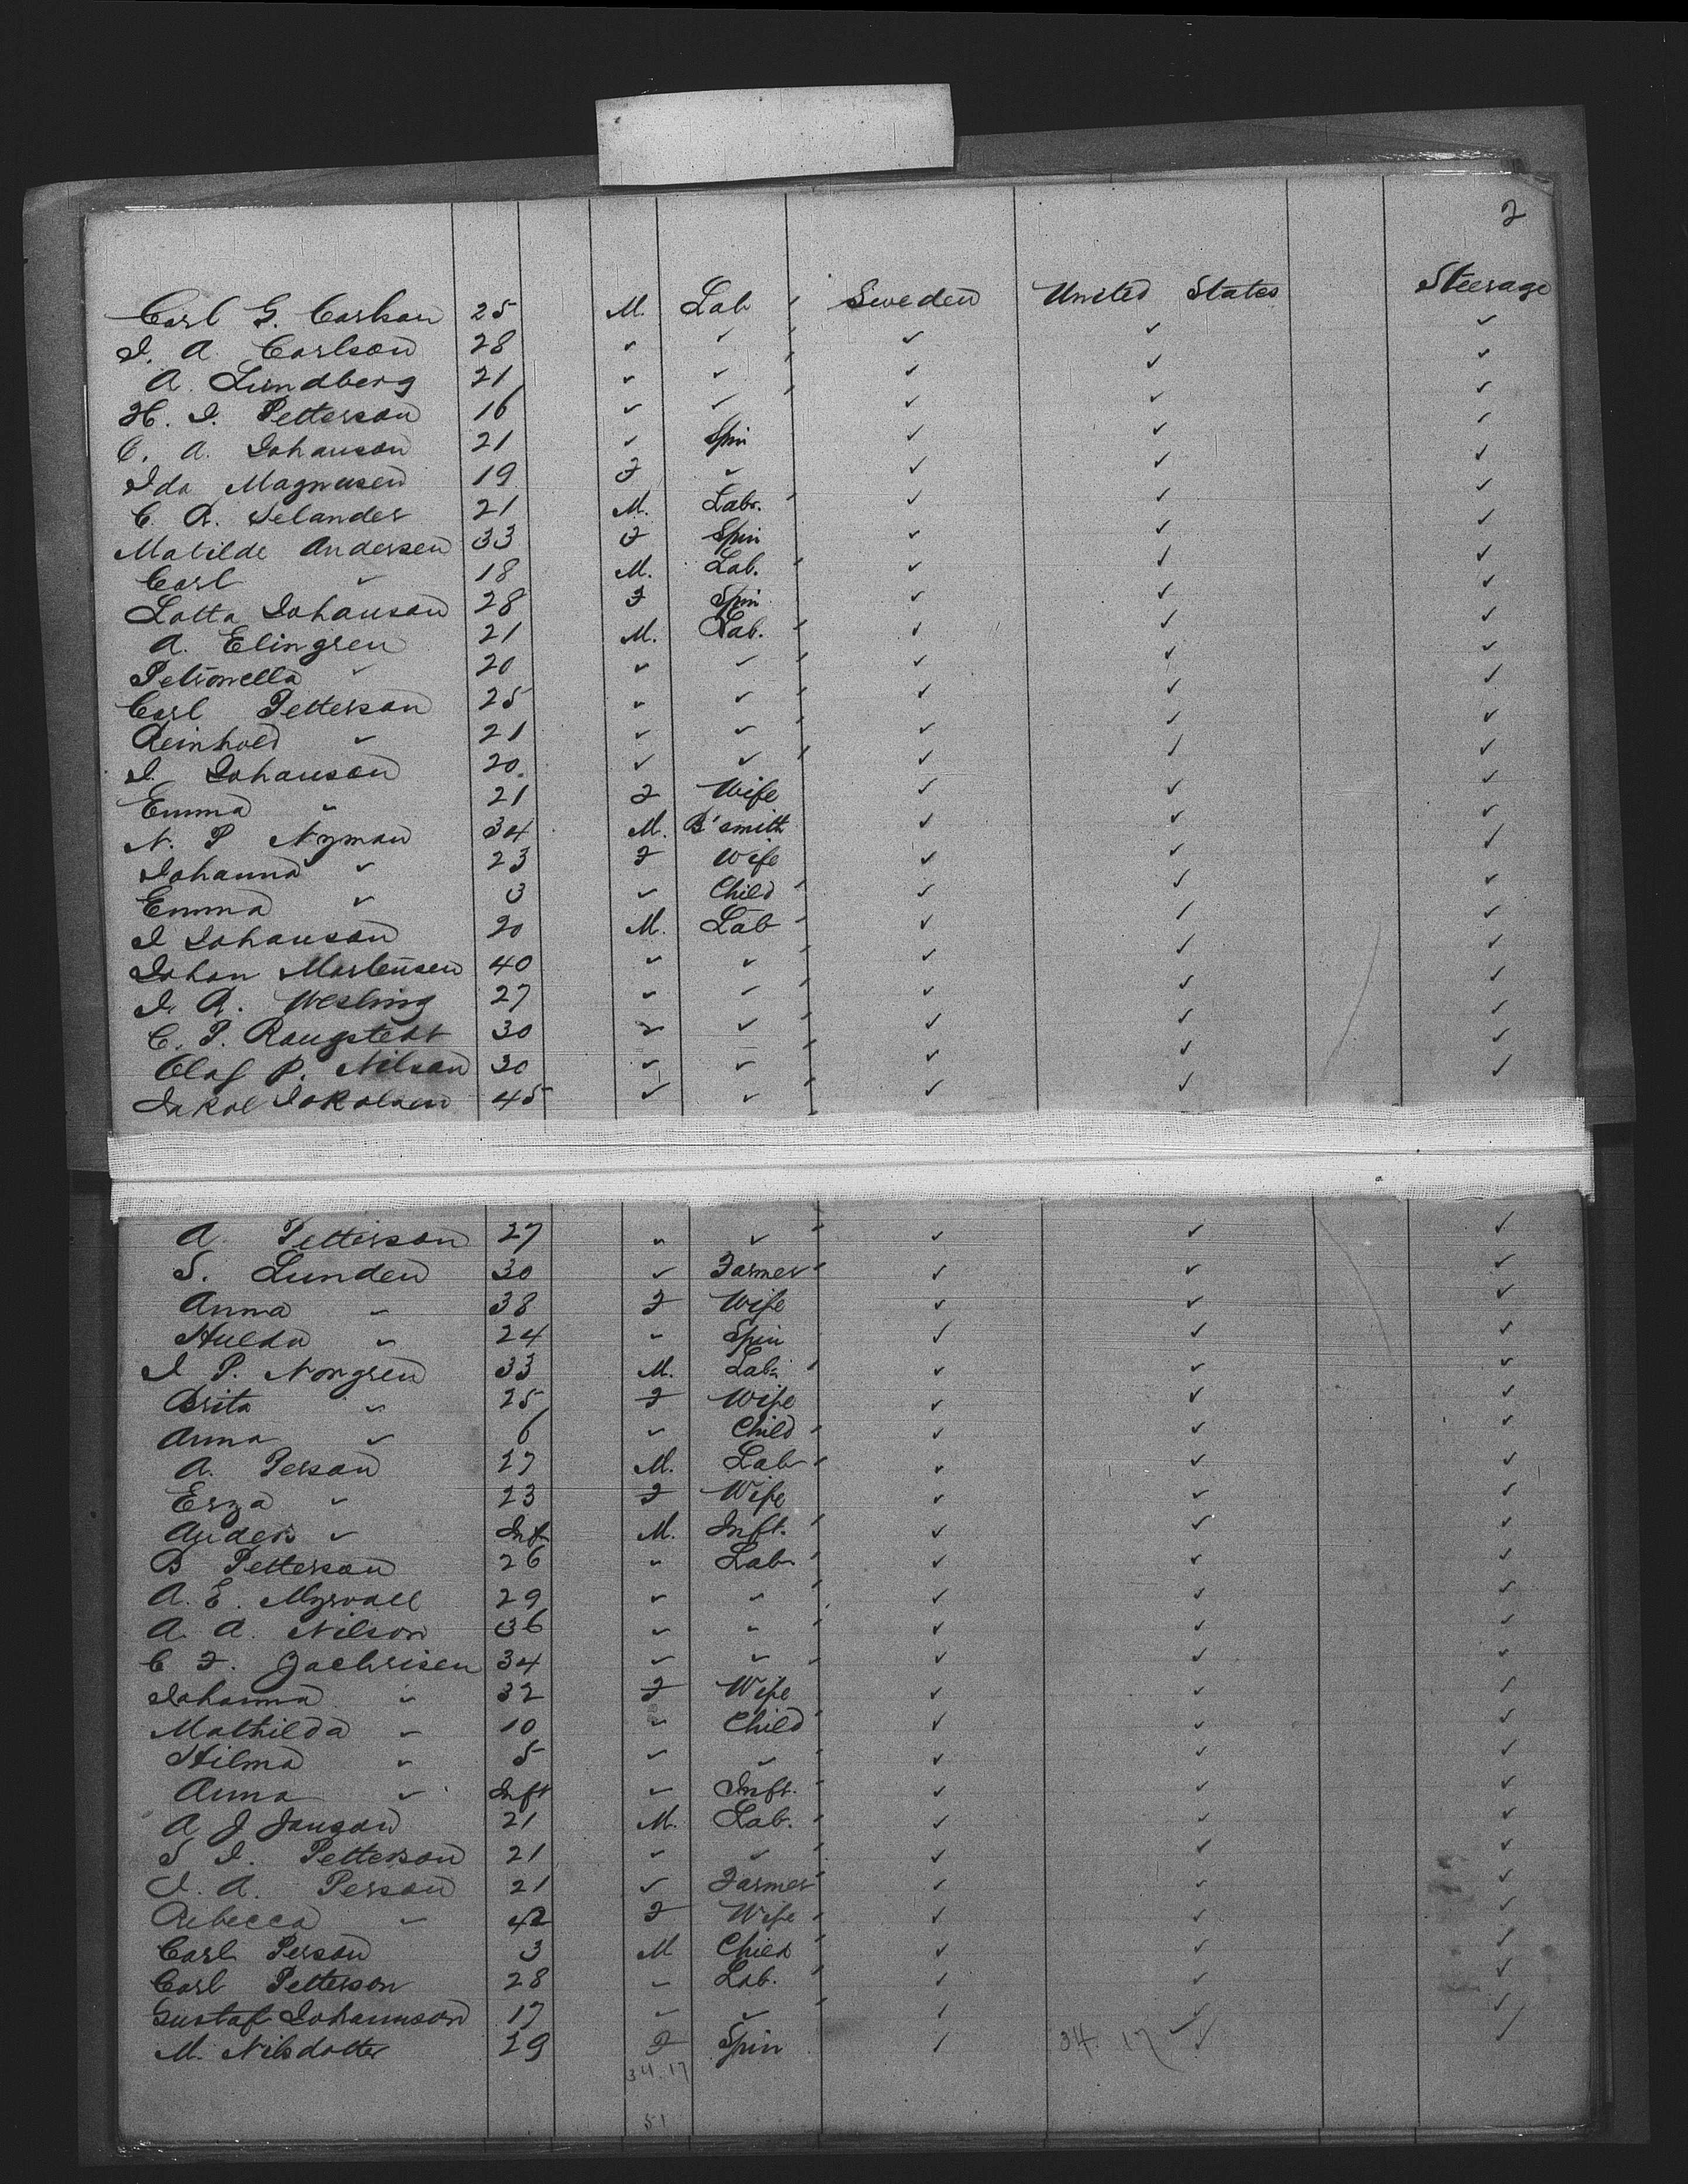 2
Carl G. Carlson 25 M. Lab Sweden United States Steerage
I. A. Carlson 28 " " ✓ ✓ ✓
A. Lundberg 21 " " ✓ ✓ ✓
H. I. Petterson 16 " " ✓ ✓ ✓
C. A. Johanson 21 " Spin ✓ ✓ ✓
Ida Magnusen 19 F " ✓ ✓ ✓
C. A. Selander 21 M. Labr. ✓ ✓ ✓
Matilde Andersen 33 F Spin ✓ ✓ ✓
Carl " 18 M. Lab. ✓ ✓ ✓
Lotta Johanson 28 F Spin ✓ ✓ ✓
A. Elingren 21 M. Lab. ✓ ✓ ✓
Petronella " 20 " " ✓ ✓ ✓
Carl Petterson 25 " " ✓ ✓ ✓
Reinhold " 21 " " ✓ ✓ ✓
I. Johanson 20. " " ✓ ✓ ✓
Emma " 21 F Wife ✓ ✓ ✓
N. P Nyman 34 M. B'smith ✓ ✓ ✓
Johanna " 23 F Wife ✓ ✓ ✓
Emma " 3 " Child ✓ ✓ ✓
I Johanson 20 M. Lab ✓ ✓ ✓
Johan Martensen 40 " " ✓ ✓ ✓
I. A. Wesling 27 " " ✓ ✓ ✓
C. P. Rangstedt 30 " " ✓ ✓ ✓
Olaf P. Nilson 30 " " ✓ ✓ ✓
Jakob Jakobsen 45 " " ✓ ✓ ✓
A. Petterson 27 " " ✓ ✓ ✓
S. Lunden 30 " Farmer ✓ ✓ ✓
Anna " 38 F Wife ✓ ✓ ✓
Hulda " 24 " Spin ✓ ✓ ✓
I P. Norgren 33 M. Lab. ✓ ✓ ✓
Brita " 25 F Wife ✓ ✓ ✓
Anna " 6 " Child ✓ ✓ ✓
A. Person 27 M. Lab ✓ ✓ ✓
Erza " 23 F Wife ✓ ✓ ✓
Anders " Inft M. Inft. ✓ ✓ ✓
B Petterson 26 " Lab ✓ ✓ ✓
A. E. Myrvall 29 " " ✓ ✓ ✓
A. A. Nilson 36 " " ✓ ✓ ✓
C F. Zachrisen 34 " " ✓ ✓ ✓
Johanna " 32 F Wife ✓ ✓ ✓
Mathilda " 10 " Child ✓ ✓ ✓
Hilma " 5 " " ✓ ✓ ✓
Anna " Inft " Inft. ✓ ✓ ✓
A J Janson 21 M. Lab. ✓ ✓ ✓
S I. Petterson 21 " " ✓ ✓ ✓
I. A. Person 21 " Farmer ✓ ✓ ✓
Rebecca " 42 F Wife ✓ ✓ ✓
Carl Person 3 M Child ✓ ✓ ✓
Carl Petterson 28 " Lab. ✓ ✓ ✓
Gustaf Johannson 17 " " ✓ ✓ ✓
M. Nilsdotter 29 F Spin ✓ 34. 17 ✓ ✓
34.17
51